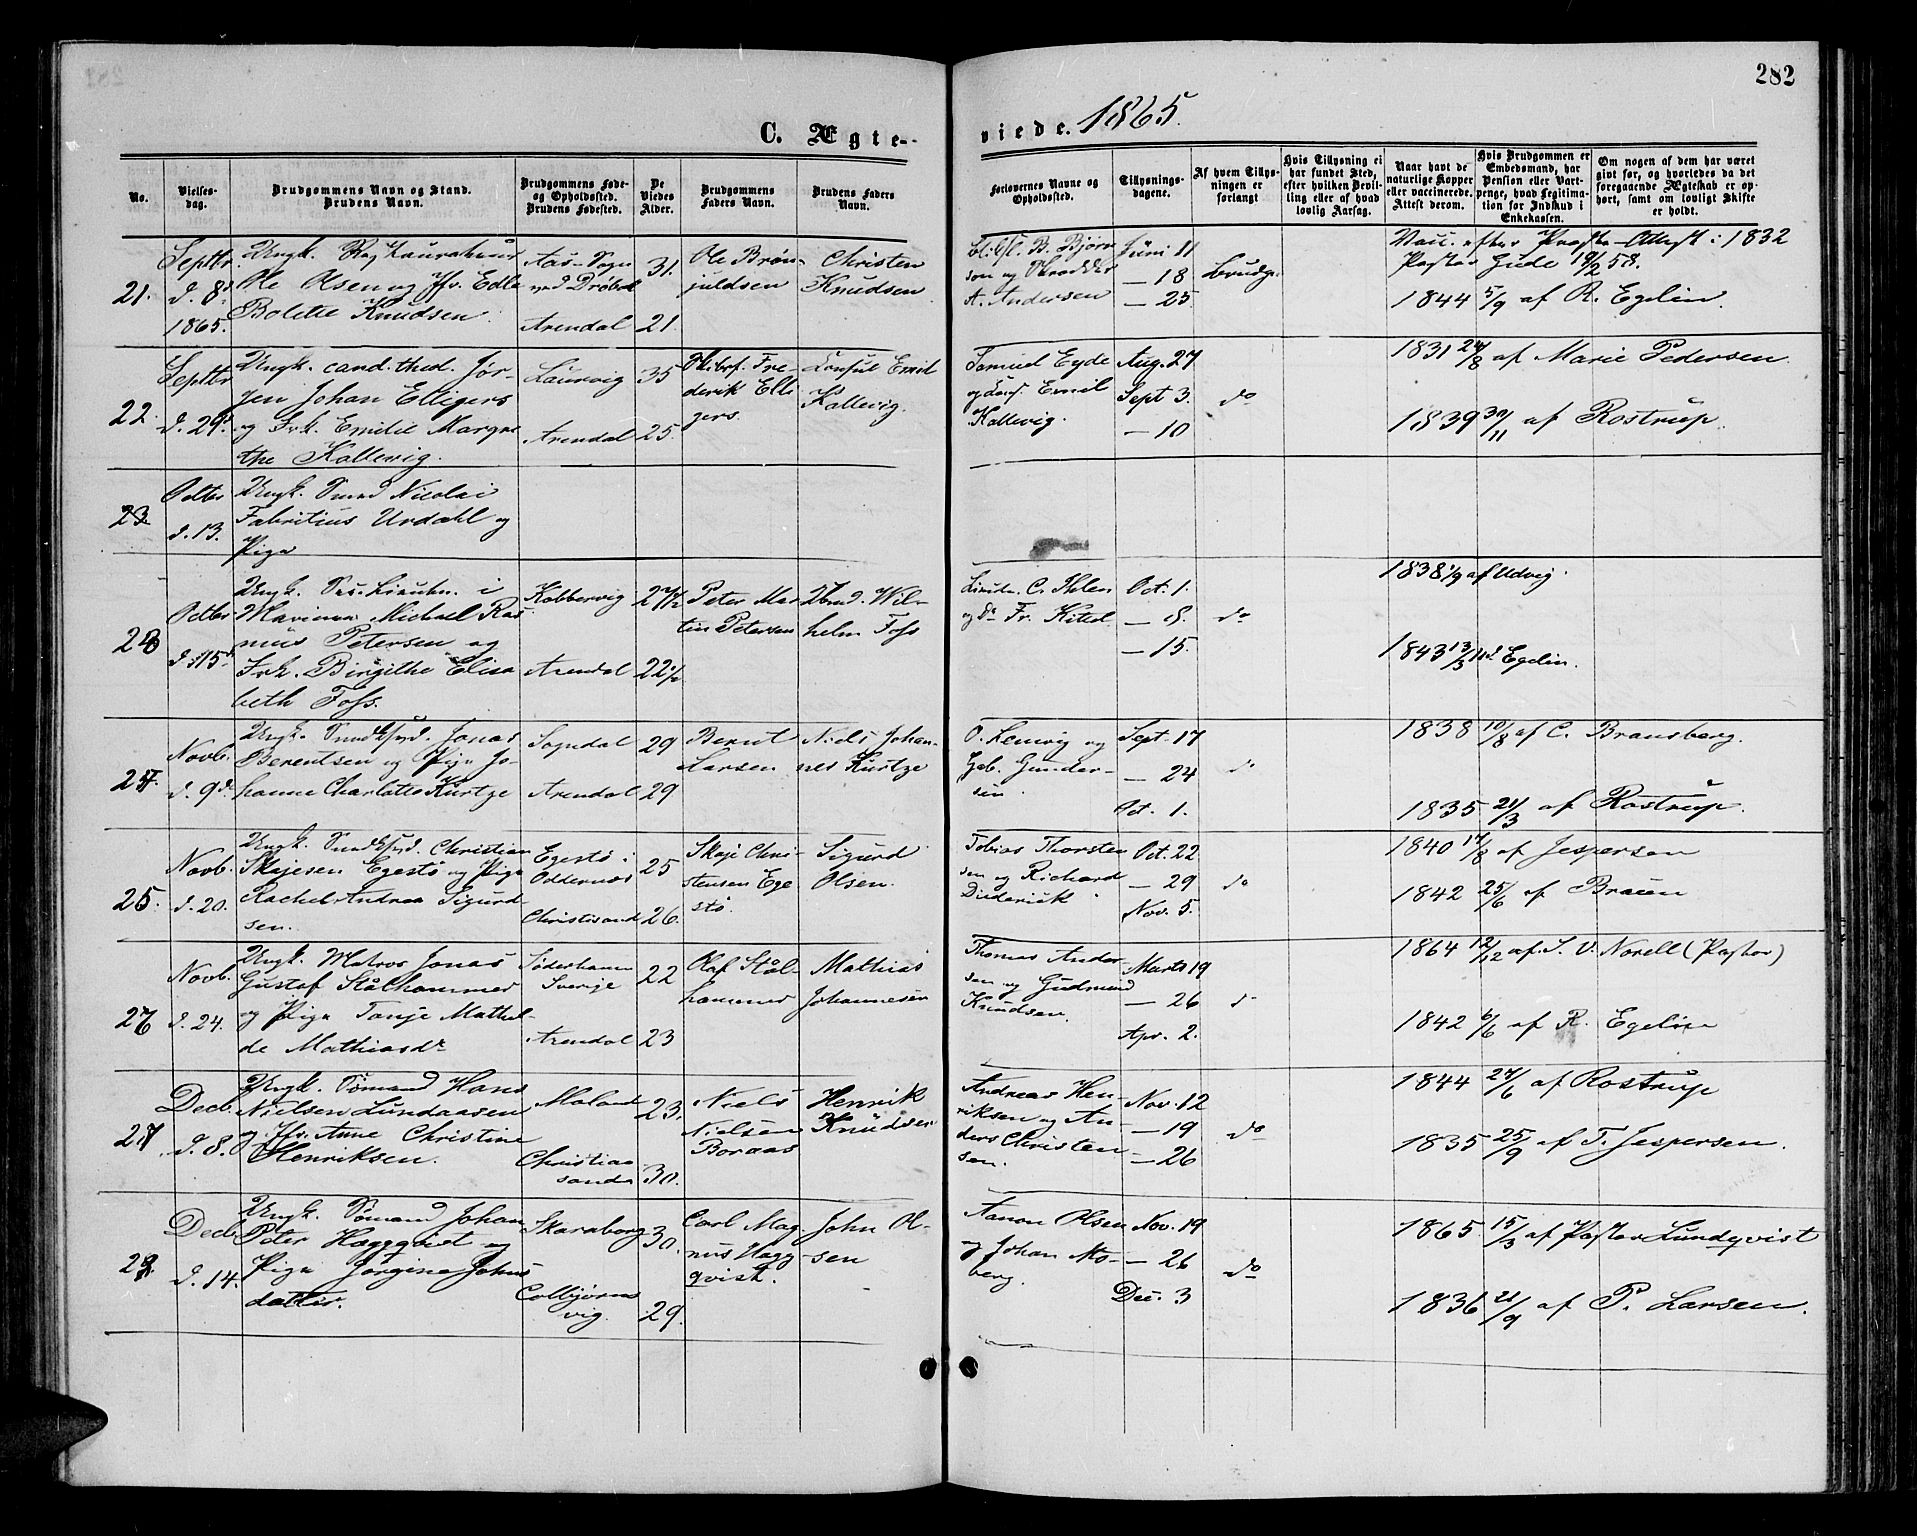 282
C. Ægte-
viede. 1865.
No.
Vielses-
dag.
Brudgommens Navn og Stand.
Brudens Navn.
Brudgommens Føde-
og Opholdssted.
Brudens Fødested.
De
Viedes
Alder.
Brudgommens
Faders Navn.
Brudens Faders
Navn.
Forlovernes Navne og
Opholdssted.
Tillysnings-
dagene.
Af hvem Tillys-
ningen er
forlangt
Hvis Tillysning ei
har fundet Sted,
efter hvilken Bevil-
ling eller af hvad
lovlig Aarsag.
Naar havt de
naturlige Kopper
eller vaccinerede.
Attest derom.
Hvis Brudgommen er
Embedsmand, har
Pension eller Vart-
penge, hvad Legitima-
tion for Indskud i
Enkekassen.
Om nogen af dem har været
givt før, og hvorledes da det
foregaaende Ægteskab er op-
hørt, samt om lovligt Skifte
er holdt.
21.
Septbr.
d. 8d
1865.
Ungk.
Ole Olsen og Jfr. Edle
Bolette Knudsen
Aas Sogn
ved Drøbak
Arendal
31.
21.
Ole Brøn-
juldsen
Christen
Knudsen
B. Bjørn
sen og
A. Andersen
Juni 11
— 18
— 25
Brudg.
Vacc. efter Præste-Attest i 1832
Pastor Gude
1844 5/9 af R. Egelin.
22.
Septbr
d. 29d
Ungk. cand. theol. Jør-
gen Johan Elligers
og Frk. Emilie Margre
the Kallevig.
Laurvig
Arendal
35
25.
Fre-
derik Elli
gers.
Consul Emil
Kallevig.
Samuel Eyde
og Cons. Emil
Kallevig.
Aug. 27
Sept 3.
— 10
do
1831 24/8 af Marie Pedersen
1839 30/11 af Rostrup.
23
Octbr
d. 13.
Ungk. Smed Nicolai
Fabritius Urdahl og
Pige
23
Octbr
d. 15d
Ungk. i
Marinen Michael Ras
mus Petersen og
Frk. Birgithe Elisa
beth Foss.
Kobbervig
Arendal
27 1/2
22 1/2
Peter Mar
tin Petersen
Wil-
helm Foss
C. Ihlen
og do Fr. Kitel
Oct. 1.
— 8.
— 15.
do
1838 1/9 af Udvig.
1843 13/3 Egelin.
24.
Novb.
d. 9d
Ungk. Jonas
Berentsen og Pige Jo-
hanne Charlotte Kurtze
Sogndal
Arendal
29
29
Bernt
Larsen
Niels Johan-
nes Kurtze
O. Lenvig og
Gab. Gunder-
sen.
Sept. 17
— 24
Oct. 1.
do
1838 10/8 af C. Bransberg.
1835 21/3 af Rostrup.
25.
Novb.
d. 20.
Ungk. Christian
Skajesen Egestø og Pige
Rachel Andrea Sigurd-
sen.
Egestø i
Oddernæs
Christiansand
25
26.
Skaje Chri-
stensen Ege
stø.
Sigurd
Olsen.
Tobias Thorsten
sen og Richard
Diderick
Oct. 22
— 29
Nov. 5.
do
1840 17/8 af Jespersen
1842 25/6 af Braun
26
Novb.
d. 24.
Ungk. Matros Jonas
Gustaf Stålhammer
og Pige Tanje Mathil-
de Mathiasdr
Søderhamn
Sverige
Arendal
22
23
Olaf Stål-
hammer
Mathias
Johannesen
Thomas Ander-
sen og Gudmund
Knudsen.
Marts 19
— 26
Apr. 2.
do
1864 12/12 af S. V. Norell (Pastor)
1842 6/6 af R. Egelin
27
Decb.
d. 8.
Ungk. Sømand Hans
Nielsen Lundaasen
og Jfr. Anne Christine
Henriksen.
Moland
Christian
sand
23.
30.
Niels
Nielsen
Boraas
Henrik
Knudsen
Andreas Hen-
riksen og An-
ders Christen
sen.
Nov. 12
— 19
— 26
do
1844 24/6 af Rostrup
1835 25/9 af T. Jespersen.
28
Decb
d. 14.
Ungk. Sømand Johan
Peter Hæggqvist og
Pige Jørgine Johns
datter.
Skaraborg
Colbjørns
vig.
30.
29.
Carl Mag-
nus Hægg
qvist.
John Ol-
sen
Aanon Olsen
og Johan Mo-
berg.
Nov. 19
— 26
Dec. 3
do
1865 15/3 af Pastor Lundqvist
1836 21/9 af P. Larsen.